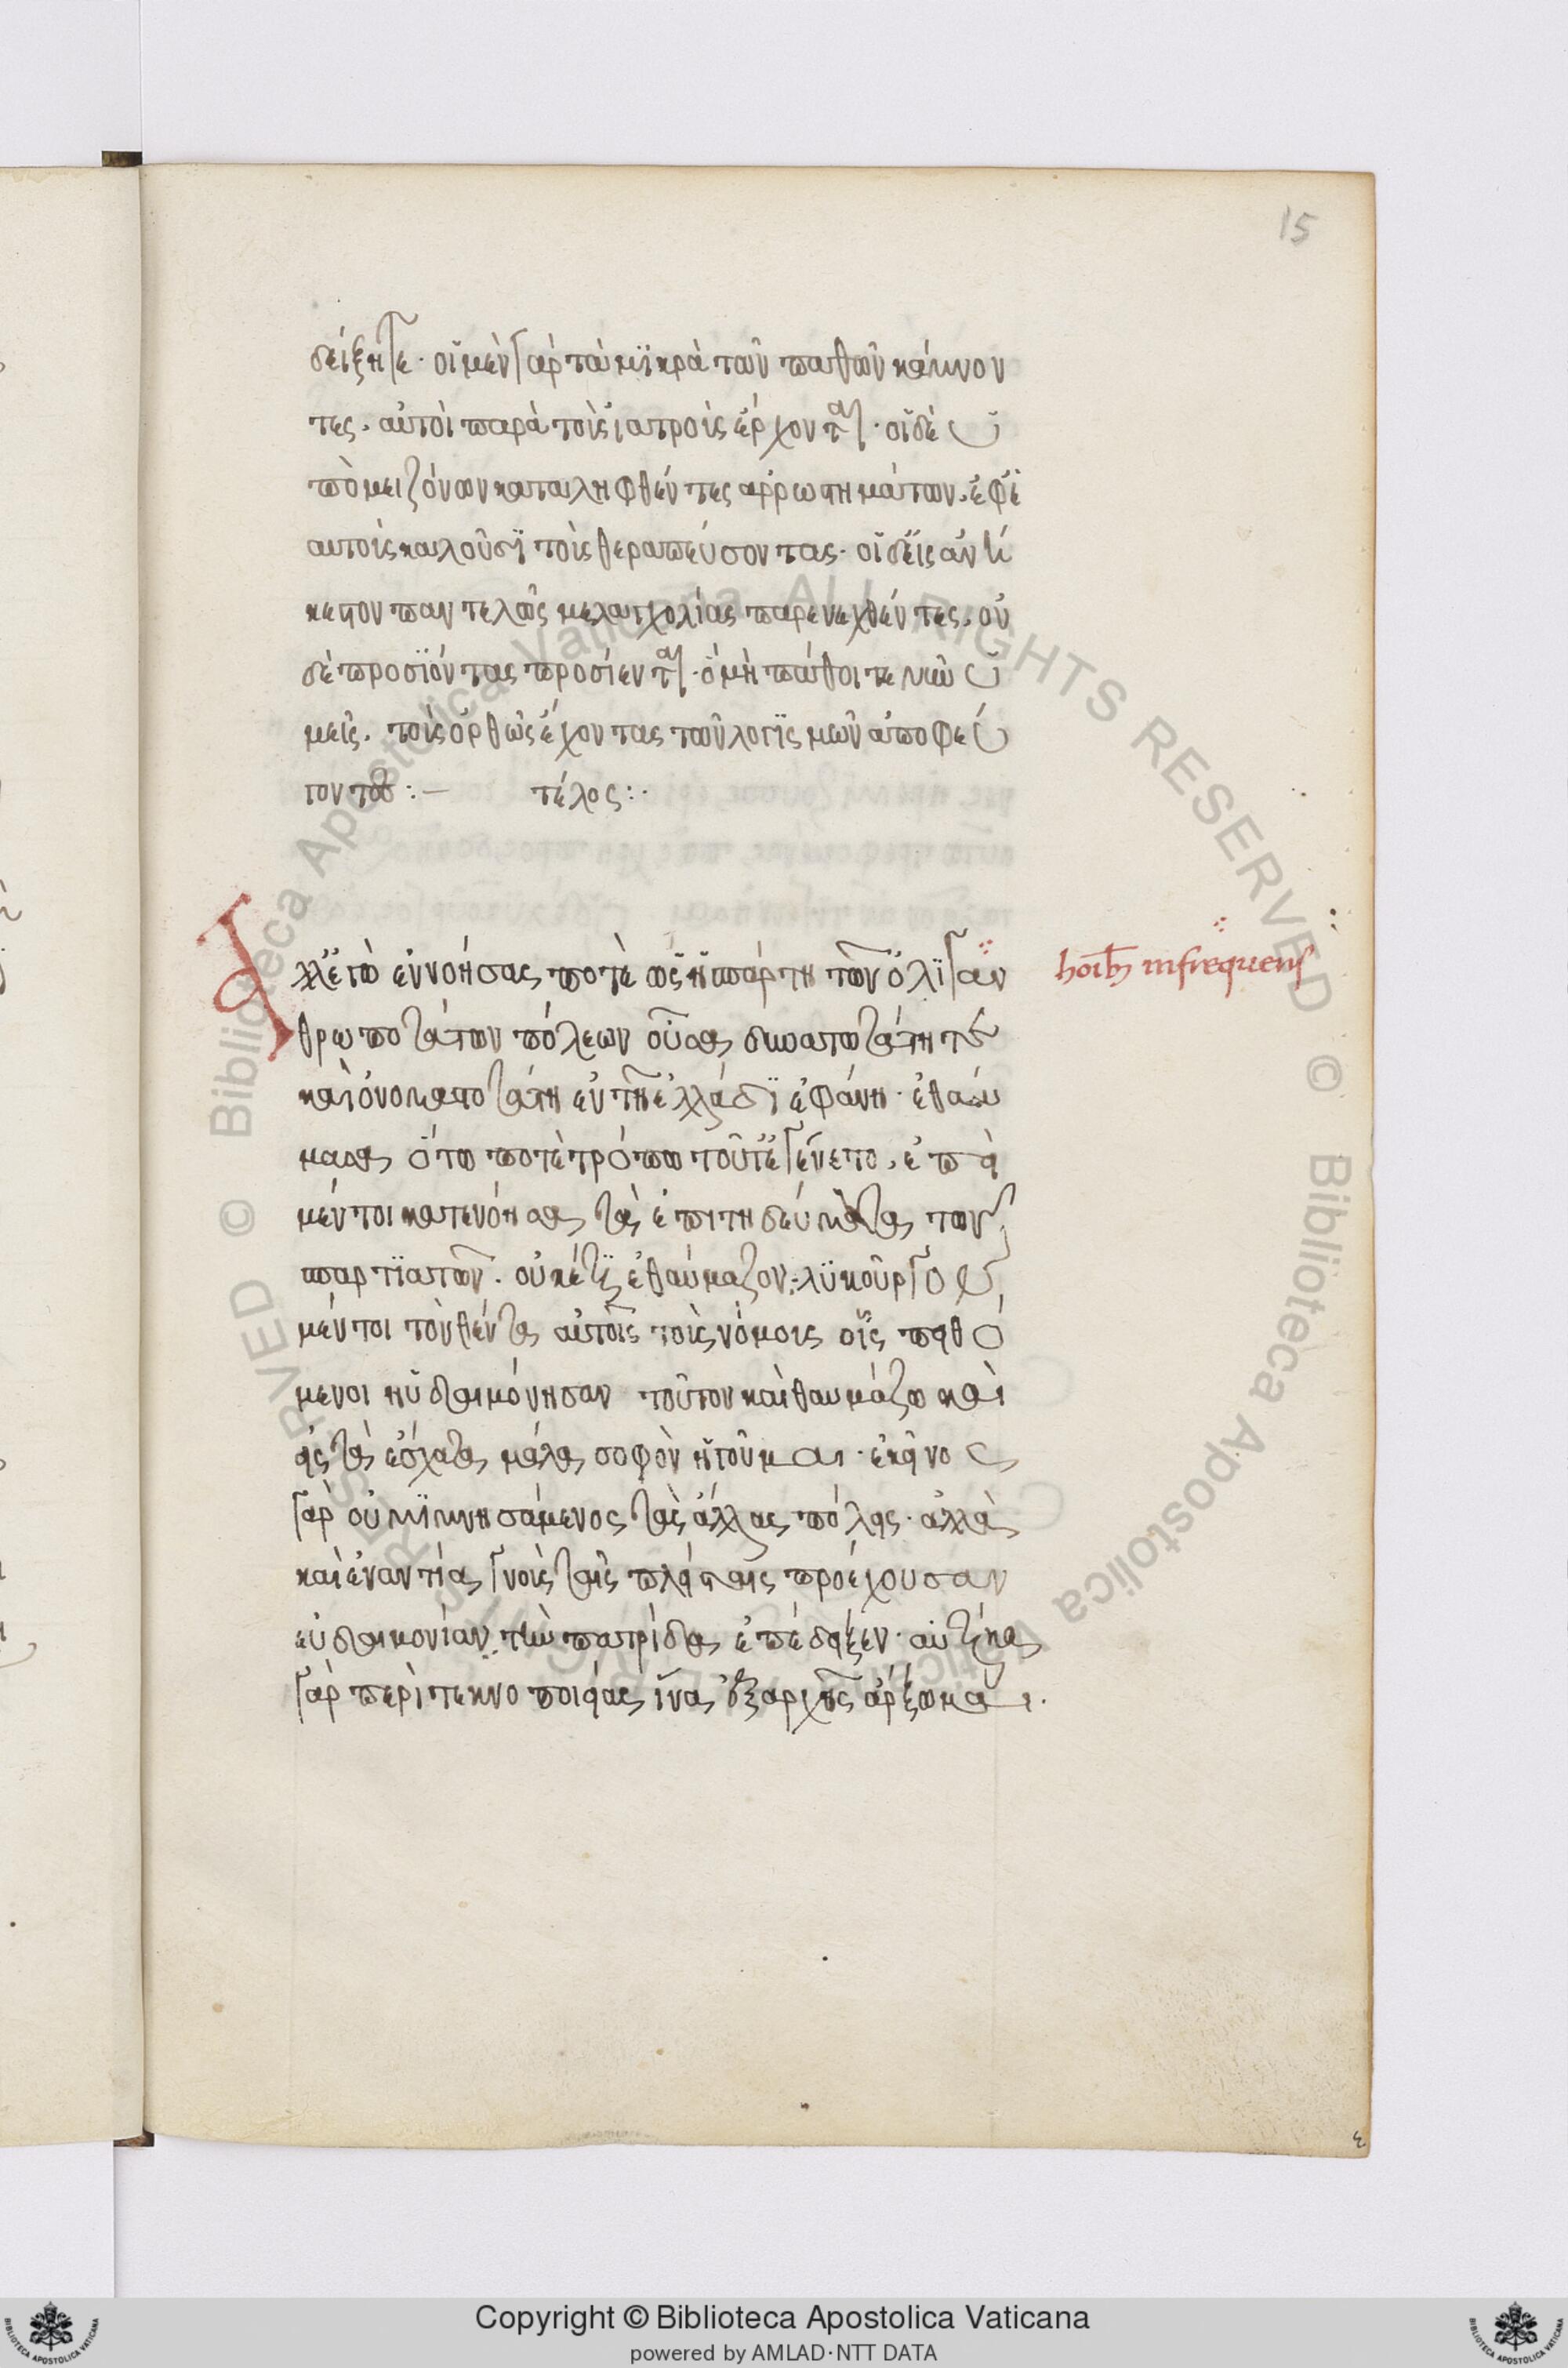 15
δείξητε· οἱ μὲν γὰρ τὰ μϊκρὰ τῶν παθῶν κάμνον
τες. αὐτοὶ παρὰ τοὺς ἰατροὺς ἔρχονται· οἱ δὲ ὑ
πὸ μειζόνων καταληφθέντες ἀρρωστημάτων. ἐφ' ἑ
αυτοὺς καλοῦσϊ τοὺς θεραπεύσοντας· οἱ δ' εἰς ἀνή
κεστον παντελῶς μελαγχολίας παρενεχθέντες. οὐ
δὲ προσϊόντας προσίενται· ὃ μὴ πάθοιτε νῦν ὑ
μεῖς. τοὺς ὀρθῶς ἔχοντας τῶν λογϊσμῶν ἀποφεύ
γοντες :— τέλος :·
Ἀλλ' ἐγὼ ἐννοήσας ποτὲ ὡς ἡ σπάρτη τῶν ὀλϊγαν
hoibus infrequens
θρωποτάτων πόλεων οὖσα δυνατωτάτη τε
καὶ ὀνομαστοτάτη ἐν τῇ ἑλλάδϊ ἐφάνη· ἐθαύ
μασα ὅτω ποτὲ τρόπω τοῦτ' ἐγένετο. ἐπεὶ
μέντοι κατενόησα τὰ ἐπιτηδεύματα τῶν σ
παρτϊατῶν· οὐκέτϊ ἐθαύμαζον· λϋκοῦργον
μέντοι τὸν θέντα αὐτοῖς τοὺς νόμους οἷς πειθό
μενοι ηὐδαιμόνησαν τοῦτον καὶ θαυμάζω καὶ
εἰς τὰ ἔσχατα μάλα σοφὸν ἡγοῦμαι· ἐκεῖνος
γὰρ οὐ μϊμησάμενος τὰς ἄλλας πόλεις· ἀλλὰ
καὶ ἐναντία γνοὺς ταῖς πλείσταις προέχουσαν
εὐδαιμονίαν τὴν πατρίδα ἐπέδειξεν· αὐτίκα
γὰρ περὶ τεκνοποιείας ἵνα ἐξ ἀρχῆς ἄρξωμαι.
Copyright © Biblioteca Apostolica Vaticana
powered by AMLAD·NTT DATA